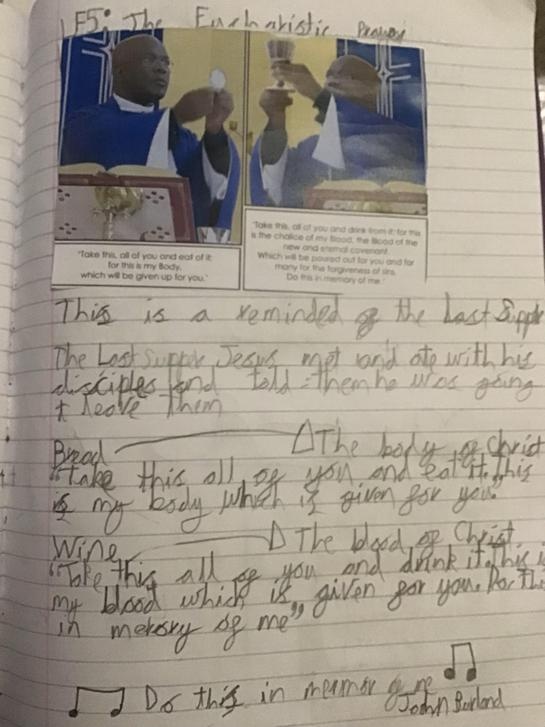 LF5: The Eucharistic Prayer
"Take this, all of you and eat of it:
for this is my Body,
which will be given up for you."
"Take this, all of you and drink from it: for this
is the chalice of my Blood, the Blood of the
new and eternal covenant.
Which will be poured out for you and for
many for the forgiveness of sins.
Do this in memory of me."
This is a reminded of the Last Supper
The Last Supper Jesus met and ate with his
disciples and told them he was going
t leave them
Bread The body of Christ
"Take this all of you and eat it. This
is my body which is given for you."
Wine The blood of Christ
"Take this all of you and drink it. This i
my blood which is given for you. Do thi
in memory of me"
Do this in memor of me
John Burland